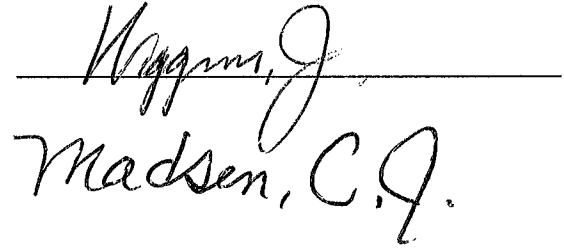 Wiggins, J.
Madsen, C.J.